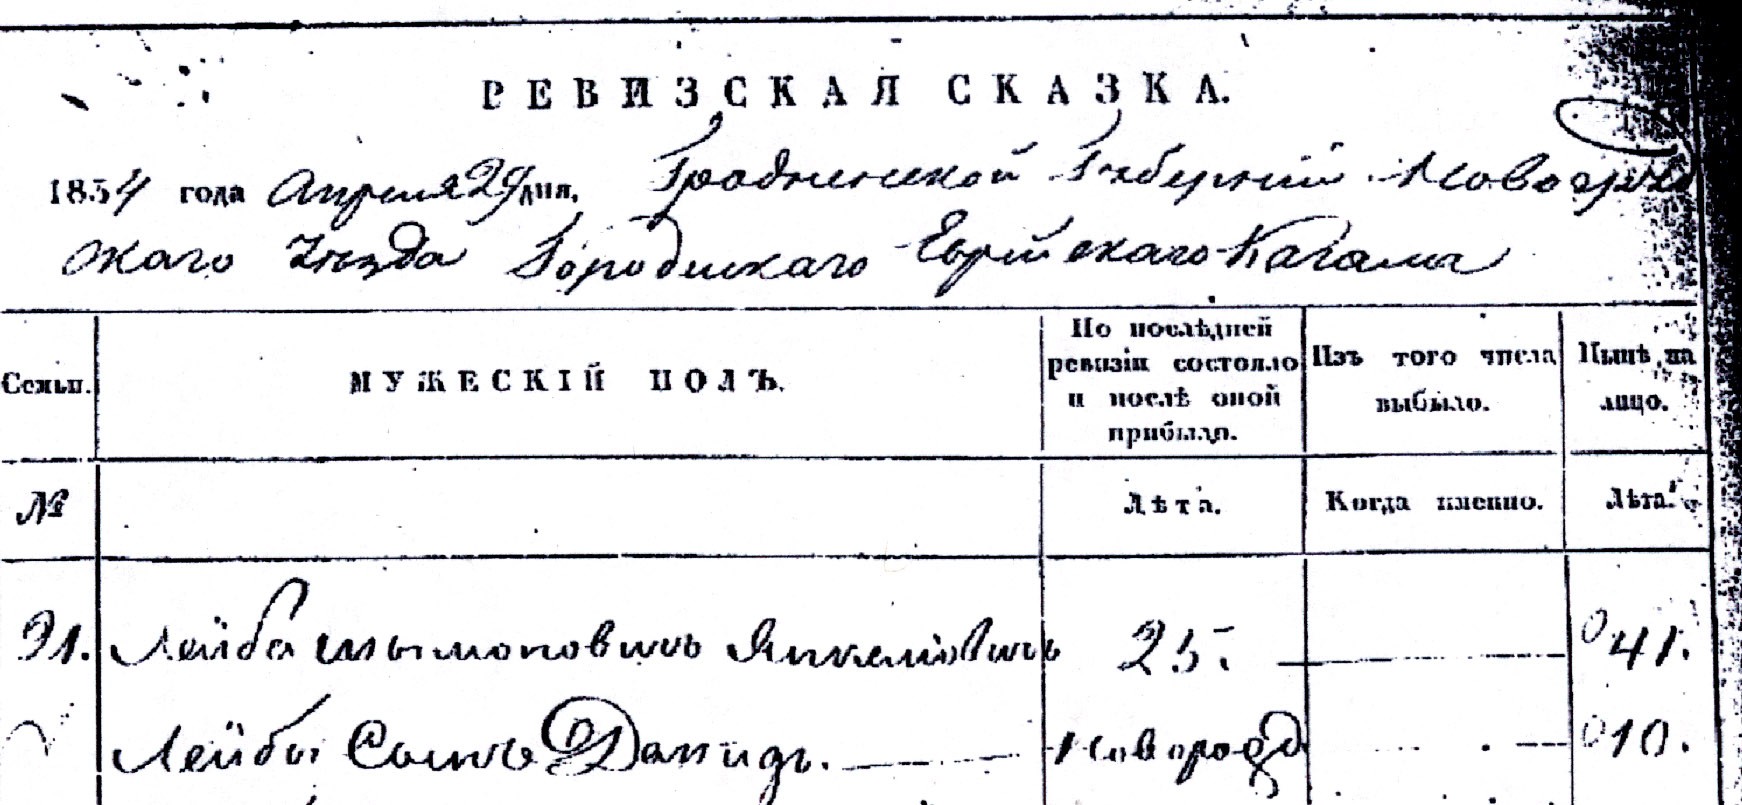 РЕВИЗСКАЯ СКАЗКА.
1834 года Апреля 29 дня, Гродненской Губернiи Новогруд
скаго Уѣзда Городискаго Еврейскаго Кагала
Семьи.
МУЖЕСКIЙ ПОЛЪ.
По послѣдней
ревизiи состояло
и послѣ оной
прибыло.
Изъ того числа
выбыло.
Нынѣ на
лицо.
№
Лѣта.
Когда именно.
Лѣта.
31. Лейба Шымоновичъ Янкелiовичъ 25. 41.
Лейбы Сынъ Давидъ. Новорожд 10.